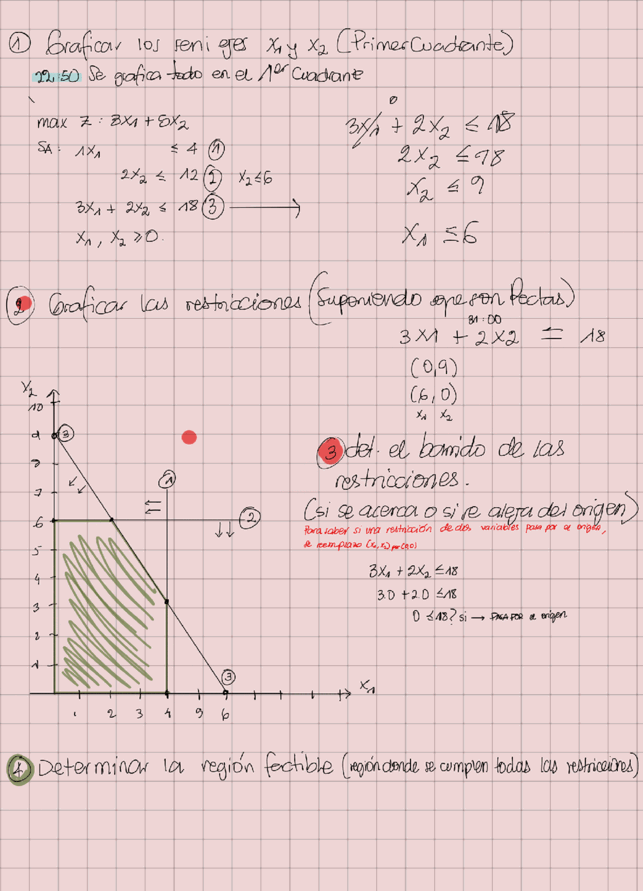 ① Graficar los semi ejes x₁ y x₂ (Primer Cuadrante)
22:50 Se grafica todo en el 1er Cuadrante
max Z: 3x₁ + 5x₂
SA: 1x₁ ≤ 4 ①
2x₂ ≤ 12 ② x₂ ≤ 6
3x₁ + 2x₂ ≤ 18 ③ →
x₁, x₂ ≥ 0.
0
3x₁ + 2x₂ ≤ 18
2x₂ ≤ 18
x₂ ≤ 9
x₁ ≤ 6
② Graficar las restricciones (Suponiendo que son Rectas)
31:00
3x1 + 2x2 = 18
(0,9)
(6,0)
x₁ x₂
③ det. el barrido de las
restricciones.
(si se acerca o si se aleja del origen)
Para saber si una restricción de dos variables pasa por el origen,
se reemplaza (x₁,x₂) por (0,0)
3x₁ + 2x₂ ≤ 18
3·0 + 2·0 ≤ 18
0 ≤ 18? si → PASA POR el origen
x₂
10
9 ③
8
7 ①
6 ②
5
4
3
2
1 ③
x₁
1 2 3 4 5 6
④ Determinar la región factible (región donde se cumplen todas las restricciones)